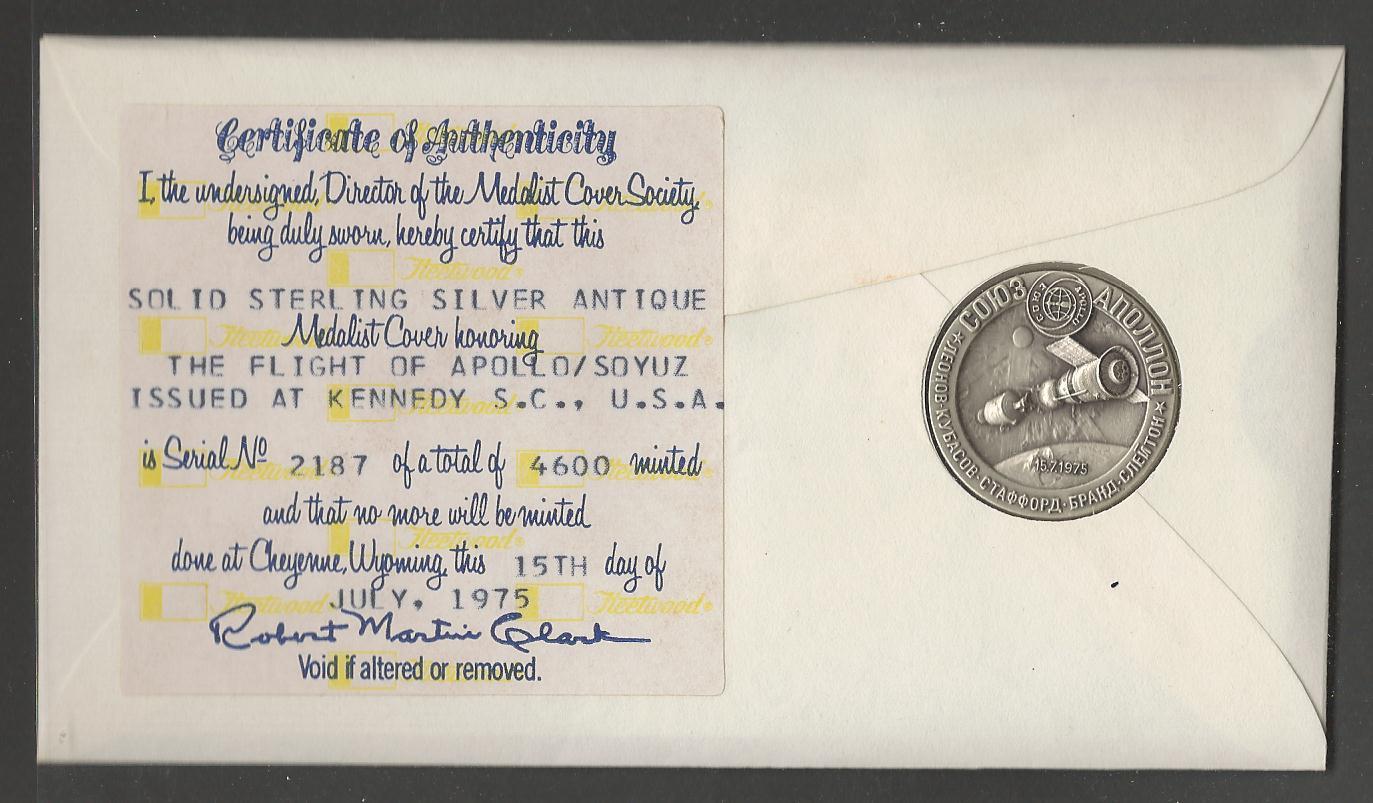 Certificate of Authenticity
I, the undersigned, Director of the Medalist Cover Society,
being duly sworn, hereby certify that this
SOLID STERLING SILVER ANTIQUE
Medalist Cover honoring
THE FLIGHT OF APOLLO/SOYUZ
ISSUED AT KENNEDY S.C., U.S.A.
is Serial No 2187 of a total of 4600 minted
and that no more will be minted
done at Cheyenne, Wyoming, this 15TH day of
JULY, 1975
Robert Martin Clark
Void if altered or removed.
Fleetwood®
СОЮЗ
АПОЛЛОН
ЛЕОНОВ·КУБАСОВ·СТАФФОРД·БРАНД·СЛЕЙТОН
15.7.1975